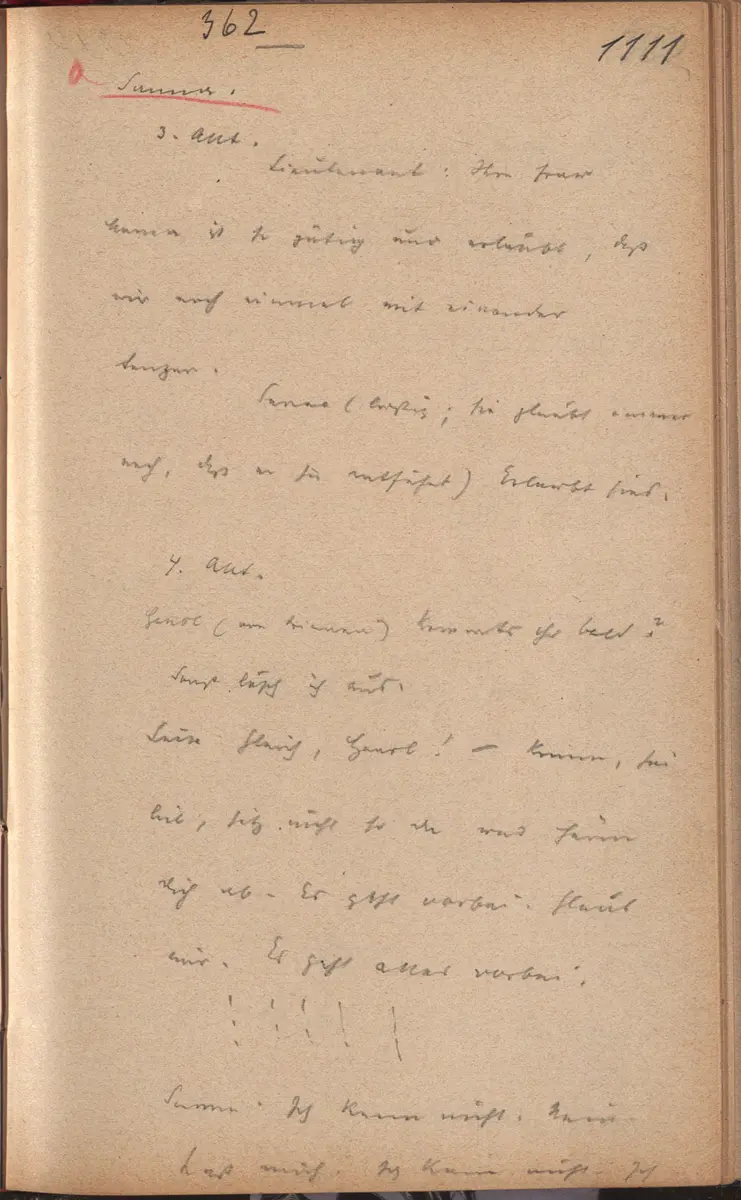 362
1111
Sanna.
3. Akt.
Lieutenant: Ihre Frau
Mama ist so gütig und erlaubt, daß
wir noch einmal mit einander
tanzen.
Sanna (lustig; sie glaubt immer
noch, daß er sie entführt) Erlaubt sind.
4. Akt.
Hansl (von drinnen) Kommts ihr bald?
Sonst lösch ich aus.
Gleich, Hansl! – Komm, sei
lieb, sitz nicht so da und härm
dich ab – Es geht vorbei. Glaub
mir. Es geht alles vorbei.
Sanna: Ich kann nicht. Nein
Laß mich. Ich kann nicht. Ich